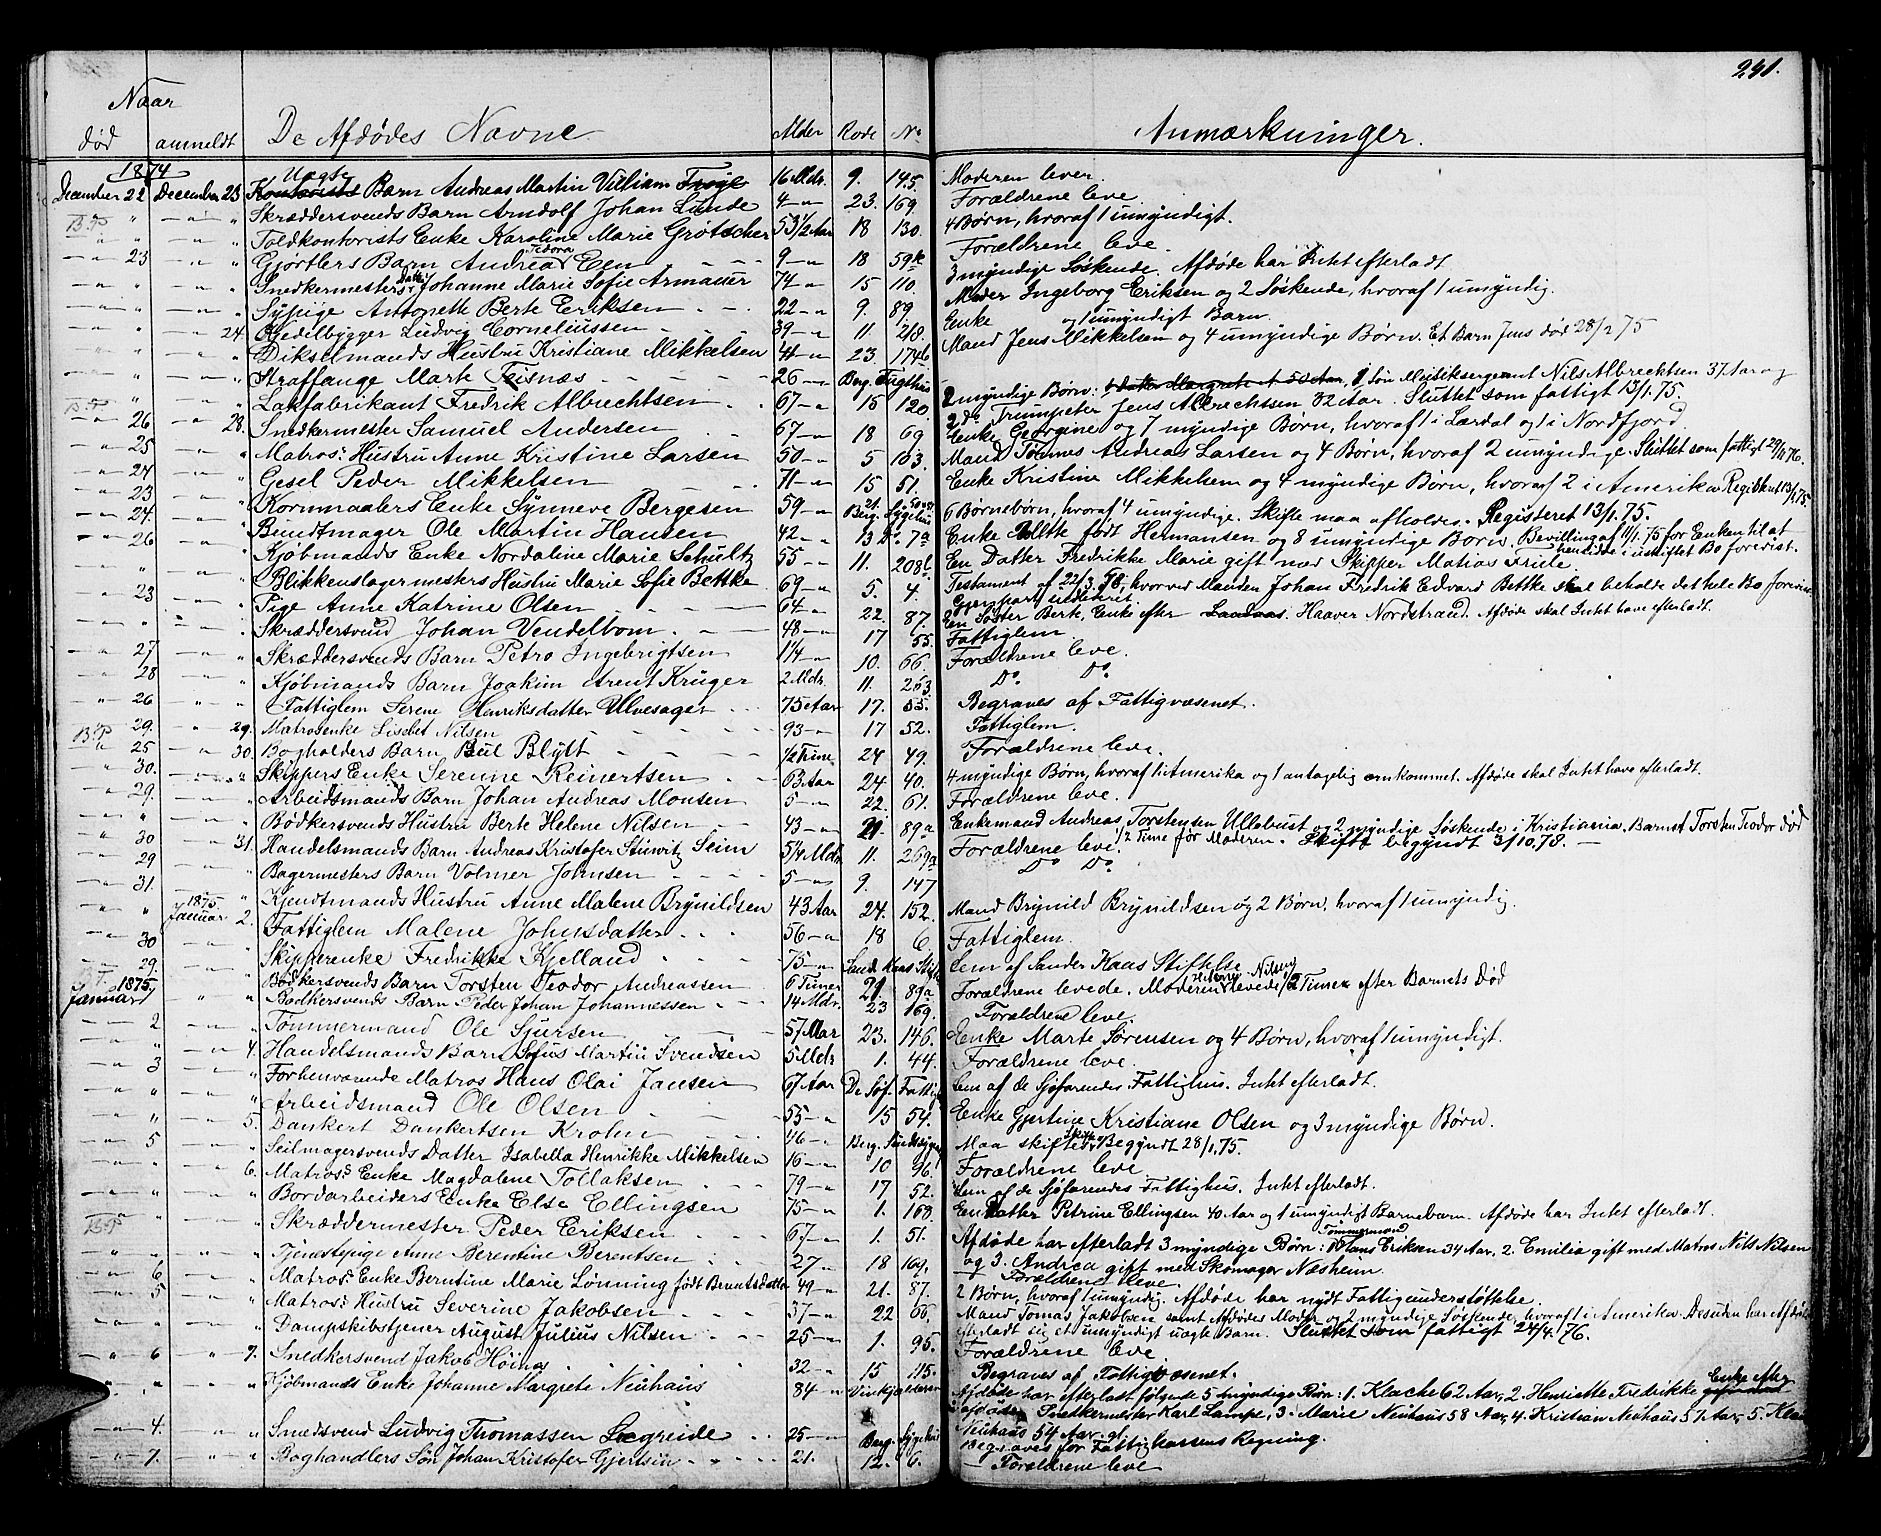 241.
Naar
død anmeldt De Afdødes Navne Alder Rode No Anmærkninger.
1874
Uægte
December 22 December 23 Kontorists Barn Andreas Martin Villiam 16 Mdr. 9. 145. Moderen lever.
" " Skræddersvends Barn Arndolf Johan Lunde 4 " 23. 169. Forældrene leve.
" " Toldkontorists Enke Karoline Marie Grøtscher 53 1/2 Aar 18 130. 4 Børn, hvoraf 1 umyndigt.
23 " Gjørtlers Barn Andrea Tedora Een 9 " 18 59b Forældrene leve.
" " Snedkermesters Datter Johanne Marie Sofie Armauer 74 " 15 110. 3 myndige Søskende. Afdøde har Intet efterladt
" " Sypige Antonette Berte Eriksen 22 " 9. 89. Moder Ingeborg Eriksen og 2 Søskende, hvoraf 1 umyndig.
" 24. Hjedelbygger Ludvig Corneliussen 39 " 11. 218. Enke og 1 umyndigt Barn.
" " Dikselmands Hustru Kristiane Mikkelsen 41 " 23 174b Mand Jens Mikkelsen og 4 umyndige Børn. Et Barn Jens død 28/2 75
" " Straffange Marte Feisnæs 26 " Berg. Tugthus
" " Lakfabrikant Fredrik Albrechtsen 67 " 15 120. 2 myndige Børn: 1 Søn Musiksergeant Nils Albrechtsen 37 Aar og
2 do Trumpeter Jens Albrechtsen 32 Aar. Sluttet som fattigt 13/1. 75.
26 28. Snedkermester Samuel Andersen 67 " 18 69. Enke Georgine og 7 myndige Børn, hvoraf 1 i Lærdal og 1 i Nordfjord.
25 " Matros: Hustru Anne Kristine Larsen 50 " 5 103. Mand Tønnes Andreas Larsen og 4 Børn, hvoraf 2 umyndige. Sluttet som fattigt 29/1 76.
24 " Gesel Peder Mikkelsen 71 " 15 51. Enke Kristine Mikkelsen og 4 myndige Børn, hvoraf 2 i Amerika
23 " Kornmaalers Enke Synneve Bergesen 59 " Berg. Sygehus 6 Børnebørn, hvoraf 4 umyndige. Skifte maa afholdes. Registeret 13/1. 75.
24. " Bundtmager Ole Martin Hansen 42 " 13 7a Enke født Hermansen og 8 umyndige Børn. Bevilling af 11/1. 75 for Enken til at hensidde i uskiftet Bo
26 " Kjøbmands Enke Nordaline Marie Schultz 55 " 11. 208b En Datter Fredrikke Marie gift med Skipper Matias Friele.
" " Blikkenslagermesters Hustru Marie Sofie Bettke 69 " 5. 4. Testament af 22/3. hvorved Manden Johan Fredrik Edvard Bettke skal beholde det hele Bo
23 " Pige Anne Katrine Olsen 64 " 22. 87. En Søster Berte, Enke efter Haaver Nordstrand. Afdøde skal Intet have efterladt.
" " Skræddersvend Johan Vendelbom 48 " 17 55. Fattiglem.
27 " Skræddersvends Barn Petro Ingebrigtsen 1 1/4 " 10. 66. Forældrene leve.
28 " Kjøbmands Barn Joakim Arent Krüger 2 Mdr. 11. 263 Do Do
26 " Fattiglem Serene Henriksdatter Ulvesager 75 Aar 17. 55. Begraves af Fattigvæsenet.
29. 29. Matrosenke Lisebet Nilsen 93 " 17 52. Fattiglem.
25 30. Bogholders Barn Bul Blytt 1/2 Time 24 49. Forældrene leve.
30. " Skippers Enke Serenne Reinertsen 63 Aar 24 40. 4 myndige Børn, hvoraf 1 i Amerika og 1 antagelig omkommet. Afdøde skal Intet have efterladt.
29. " Arbeidsmands Barn Johan Andreas Monsen 5 " 22. 61. Forældrene leve.
" " Bødkersvends Hustru Berte Helene Nilsen 43 " 21 89a Enkemand Andreas Torstensen Ullebust og 2 myndige Søskende i Kristiania, Barnet Torsten Teodor død
1/2 Time før Moderen. Skifte begyndt 3/10. 78.
30 31. Handelsmands Barn Andreas Kristofer Stüwitz Seim 5 1/4 Mdr. 11. 269a Forældrene leve.
29 " Bagermesters Barn Volmer Johnsen 5 " 9. 147 Do Do
31. " Kjendtmands Hustru Anne Malene Brynildsen 43 Aar 24. 152. Mand Brynild Brynildsen og 2 Børn, hvoraf 1 umyndig.
1875.
" Januar 2. Fattiglem Malene Johnsdatter 56 " 18 6. Fattiglem.
30 " Skipperenke Fredrikke Kjelland 75 " Sand. Kaas Stift. Lem af Sander Kaas Stiftelse
29. " Bødkersvends Barn Torsten Teodor Andreassen 6 Timer 21 89a Forældrene levede. Moderen levede 1/2 Time efter Barnets Død
1875.
Januar " " Bødkersvends Barn Peder Johan Johannessen 14 Mdr. 23 169. Forældrene leve.
2 " Tømmermand Ole Sjursen 57 Aar 23. 146. Enke Marte Sørensen og 4 Børn, hvoraf 1 umyndigt.
" 4. Handelsmands Barn Sofus Martin Svendsen 5 Mdr 1. 44. Forældrene leve.
3 " Forhenværende Matros Hans Olai Jansen 67 Aar De Søf. Fattigh. Lem af de Sjøfarendes Fattighus. Intet efterladt.
" " Arbeidsmand Ole Olsen 55 " 15 54. Enke Gjertine Kristiane Olsen og 3 myndige Børn.
" 5. Dankert Dankertsen Krohn 46 " Berg. Maa skiftes. Skifte Begyndt 28/1. 75.
5 " Seilmagersvends Datter Isabella Henrikke Mikkelsen 16 " 10 96. Forældrene leve.
" 6. Matros: Enke Magdalene Tollaksen 79 " 17 52. Lem af de Sjøfarendes Fattighus. Intet efterladt.
" " Bordarbeiders Enke Else Ellingsen 75 " 1. 168. En Datter Petrine Ellingsen 40 Aar og 1 umyndigt Barnebarn. Afdøde har Intet efterladt.
" " Skræddermester Peder Eriksen 67 " 1. 51. Afdøde har efterladt 3 myndige Børn: 1 Tømmermand Hans Eriksen 34 Aar, 2. Emilia gift med Matros Nils Nilsen
og 3. Andrea gift med Skomager Næsheim.
" " Tjenestepige Anne Berentine Berentsen 27 " 18 Forældrene leve.
6 " Matros: Enke Berntine Marie Lønning født Berntsdatter 49 " 21. 87. 2 Børn, hvoraf 1 umyndig. Afdøde har nydt Fattigunderstøttelse.
5 " Matros: Hustru Severine Jakobsen 37 " 22 66. Mand Tomas Jakobsen samt Afdødes Moder og 2 myndige Søskende, hvoraf 1 i Amerika. Desuden har Afdøde
efterladt sig et umyndigt uægte Barn. Sluttet som fattigt 24/4. 76.
" " Dampskibstjener August Julius Nilsen 25 " 1. 95. Forældrene leve
6 7. Snedkersvend Jakob Høinæs 32 " 15 115. Begraves af Fattigvæsenet.
" " Kjøbmands Enke Johanne Margrete Neuhaus 84 " Vinkjælderen Afdøde har efterladt følgende 5 myndige Børn: 1. Klache 62 Aar, 2. Henriette Fredrikke Enke efter
Snedkermester Karl Lampe, 3. Marie Neuhaus 58 Aar, 4. Kristian Neuhaus 57 Aar, 5.
Neuhaus 54 Aar gl.
4. " Smedsvend Ludvig Thomassen Lægreide 25 " Berg. Sygehus Begraves for Fattigkassens Regning.
7. " Boghandlers Søn Johan Kristofer Gjertsen 21. 12. 6. Forældrene leve